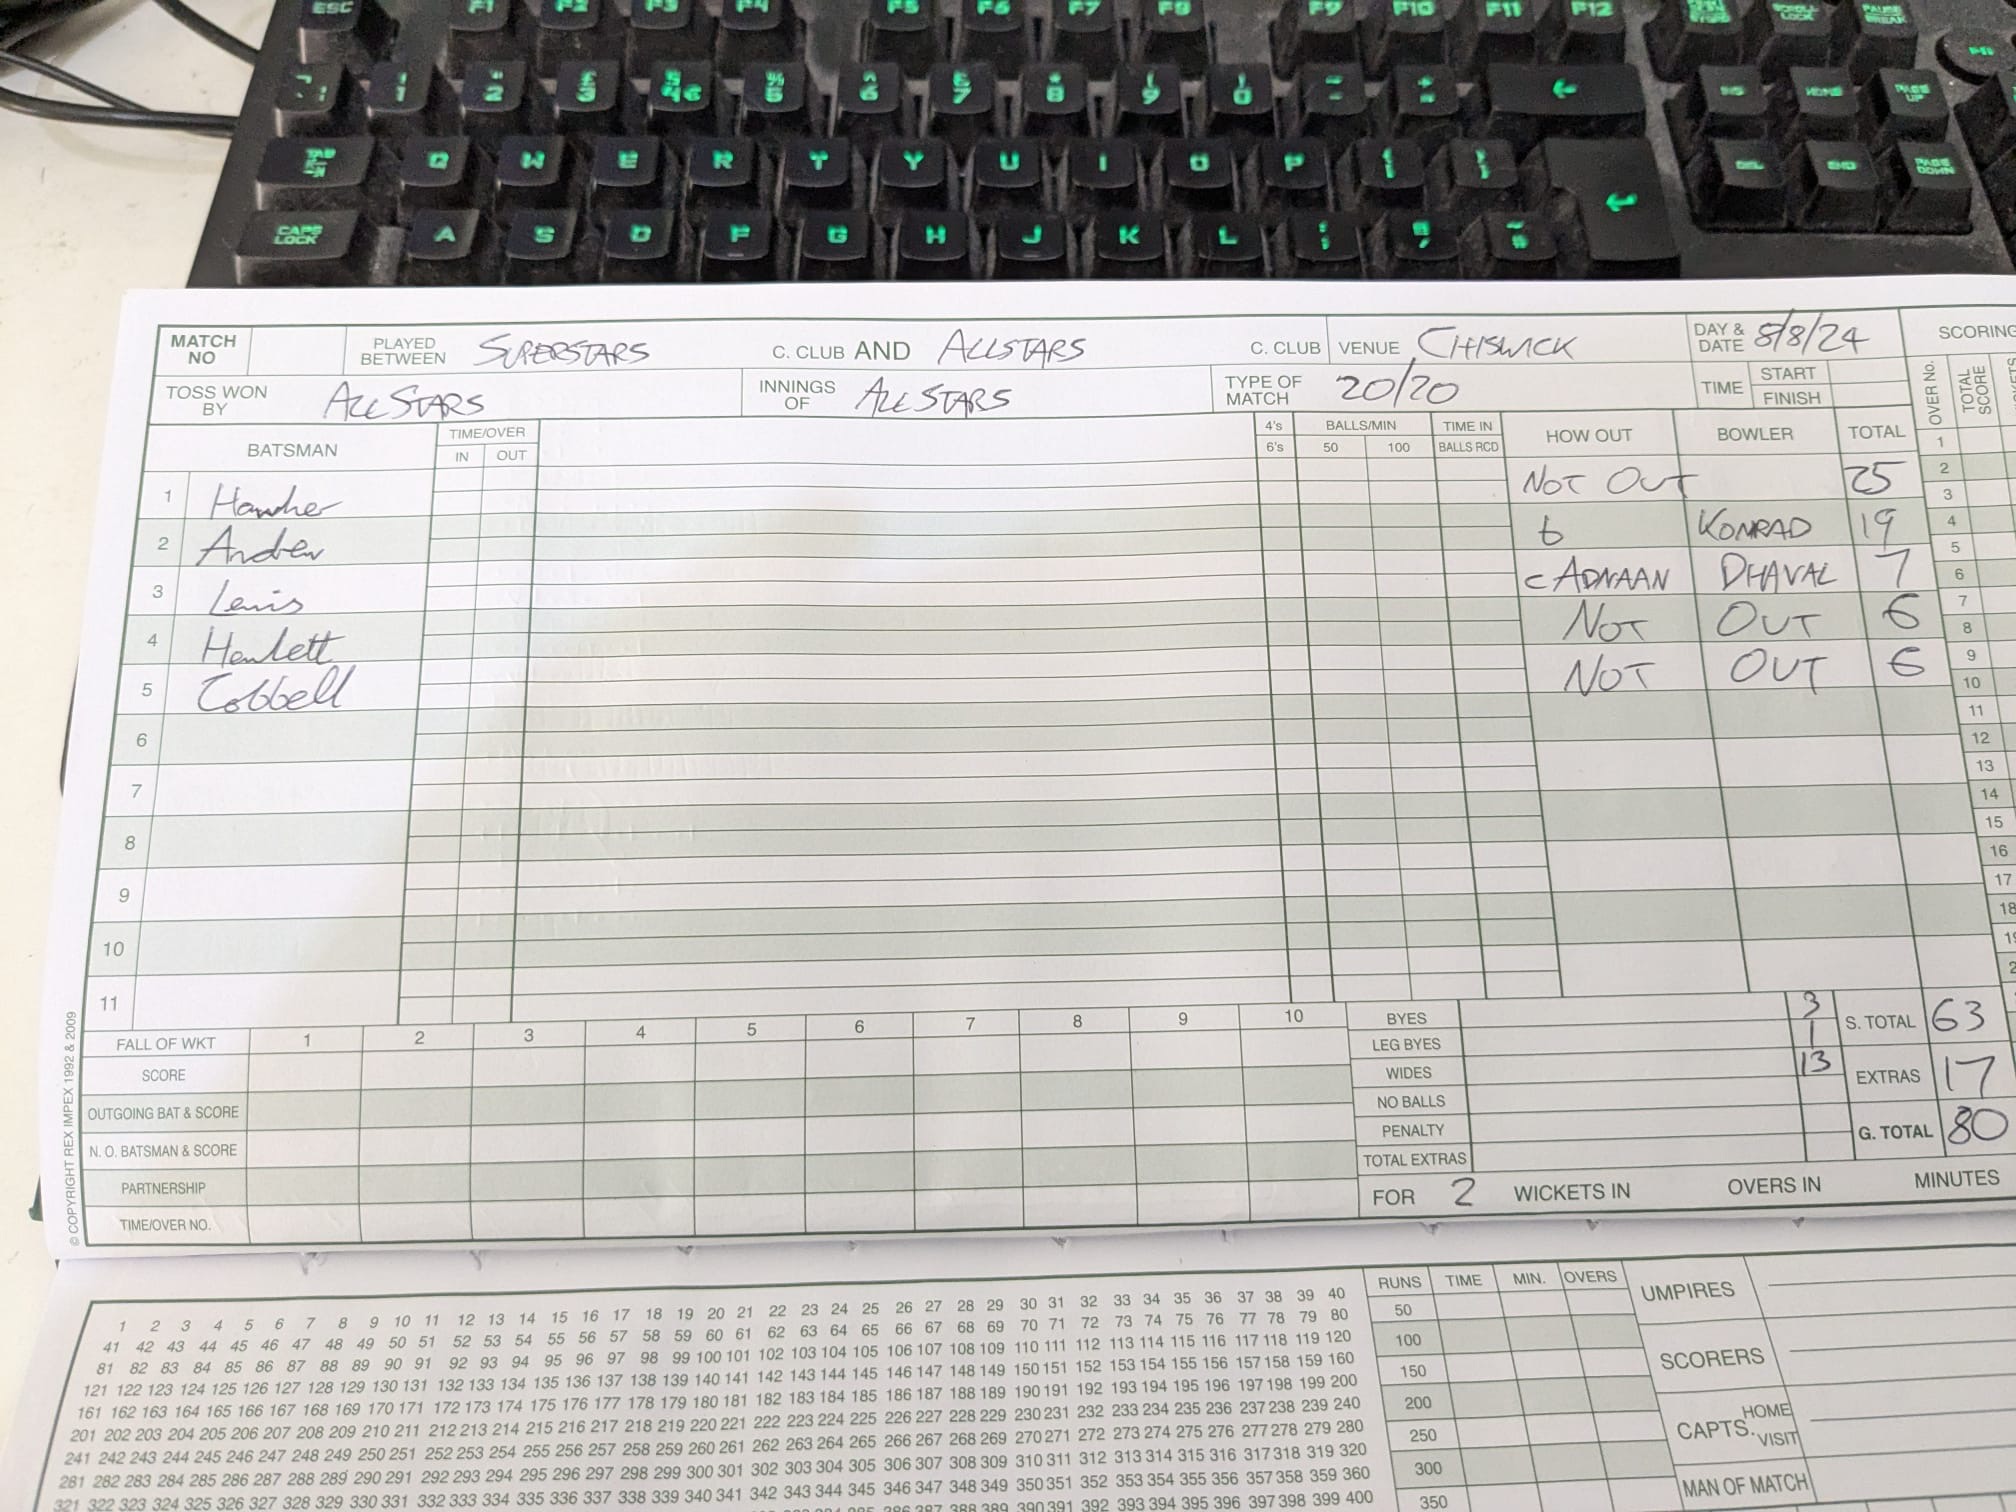 ESC F1 F2 F3 F4 F5 F6 F7 F8 F9 F10 F11 F12 SCROLL LOCK PAUSE BREAK
1 2 3 4 5 6 7 8 9 0 HOME PAGE UP
TAB Q W E R T Y U I O P DEL END PAGE DOWN
CAPS LOCK A S D F G H J K L
MATCH NO PLAYED BETWEEN SUPERSTARS C. CLUB AND ALLSTARS C. CLUB VENUE CHISWICK DAY & DATE 8/8/24 SCORING
TOSS WON BY ALLSTARS INNINGS OF ALLSTARS TYPE OF MATCH 20/20 TIME START FINISH
OVER No. TOTAL SCORE
BATSMAN TIME/OVER IN OUT 4's 6's BALLS/MIN 50 100 TIME IN BALLS RCD HOW OUT BOWLER TOTAL
1 NOT OUT 25
2 Andrew b KONRAD 19
3 Lewis c ADNAAN DHAVAL 7
4 Hewlett NOT OUT 6
5 Cobbell NOT OUT 6
6
7
8
9
10
11
1
2
3
4
5
6
7
8
9
10
11
12
13
14
15
16
17
18
FALL OF WKT 1 2 3 4 5 6 7 8 9 10
SCORE
OUTGOING BAT & SCORE
N. O. BATSMAN & SCORE
PARTNERSHIP
TIME/OVER NO.
BYES 3
LEG BYES 1
WIDES 13
NO BALLS
PENALTY
TOTAL EXTRAS
S. TOTAL 63
EXTRAS 17
G. TOTAL 80
FOR 2 WICKETS IN OVERS IN MINUTES
© COPYRIGHT REX IMPEX 1992 & 2009
1 2 3 4 5 6 7 8 9 10 11 12 13 14 15 16 17 18 19 20 21 22 23 24 25 26 27 28 29 30 31 32 33 34 35 36 37 38 39 40
41 42 43 44 45 46 47 48 49 50 51 52 53 54 55 56 57 58 59 60 61 62 63 64 65 66 67 68 69 70 71 72 73 74 75 76 77 78 79 80
81 82 83 84 85 86 87 88 89 90 91 92 93 94 95 96 97 98 99 100 101 102 103 104 105 106 107 108 109 110 111 112 113 114 115 116 117 118 119 120
121 122 123 124 125 126 127 128 129 130 131 132 133 134 135 136 137 138 139 140 141 142 143 144 145 146 147 148 149 150 151 152 153 154 155 156 157 158 159 160
161 162 163 164 165 166 167 168 169 170 171 172 173 174 175 176 177 178 179 180 181 182 183 184 185 186 187 188 189 190 191 192 193 194 195 196 197 198 199 200
201 202 203 204 205 206 207 208 209 210 211 212 213 214 215 216 217 218 219 220 221 222 223 224 225 226 227 228 229 230 231 232 233 234 235 236 237 238 239 240
241 242 243 244 245 246 247 248 249 250 251 252 253 254 255 256 257 258 259 260 261 262 263 264 265 266 267 268 269 270 271 272 273 274 275 276 277 278 279 280
281 282 283 284 285 286 287 288 289 290 291 292 293 294 295 296 297 298 299 300 301 302 303 304 305 306 307 308 309 310 311 312 313 314 315 316 317 318 319 320
321 322 323 324 325 326 327 328 329 330 331 332 333 334 335 336 337 338 339 340 341 342 343 344 345 346 347 348 349 350 351 352 353 354 355 356 357 358 359 360
387 388 389 390 391 392 393 394 395 396 397 398 399 400
RUNS TIME MIN. OVERS
50
100
150
200
250
300
350
UMPIRES
SCORERS
CAPTS. HOME VISIT
MAN OF MATCH